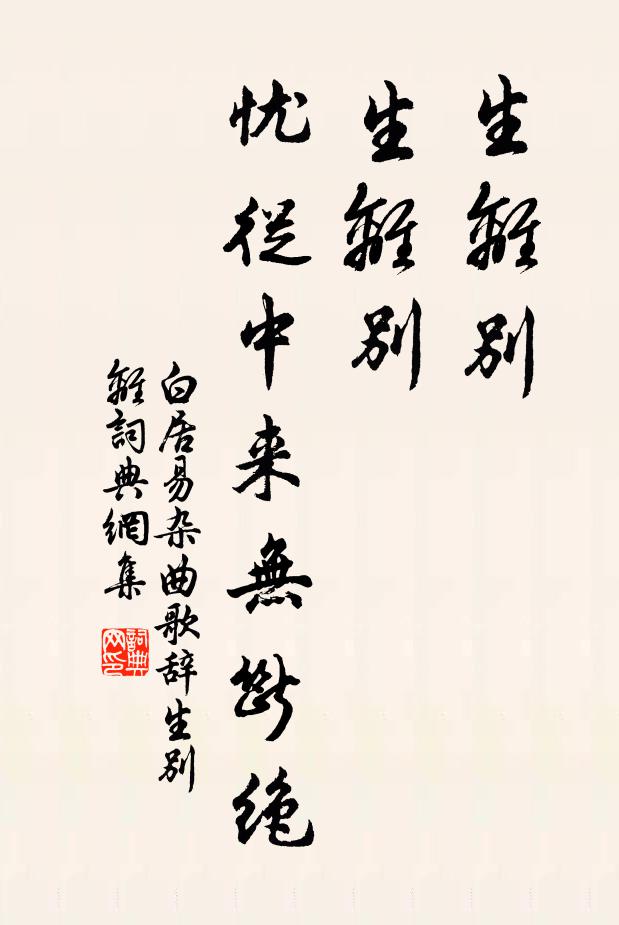 生離别
生離别
忧從中来無斷绝
白居易杂曲歌辞生别
離詞典網集
詞典网印